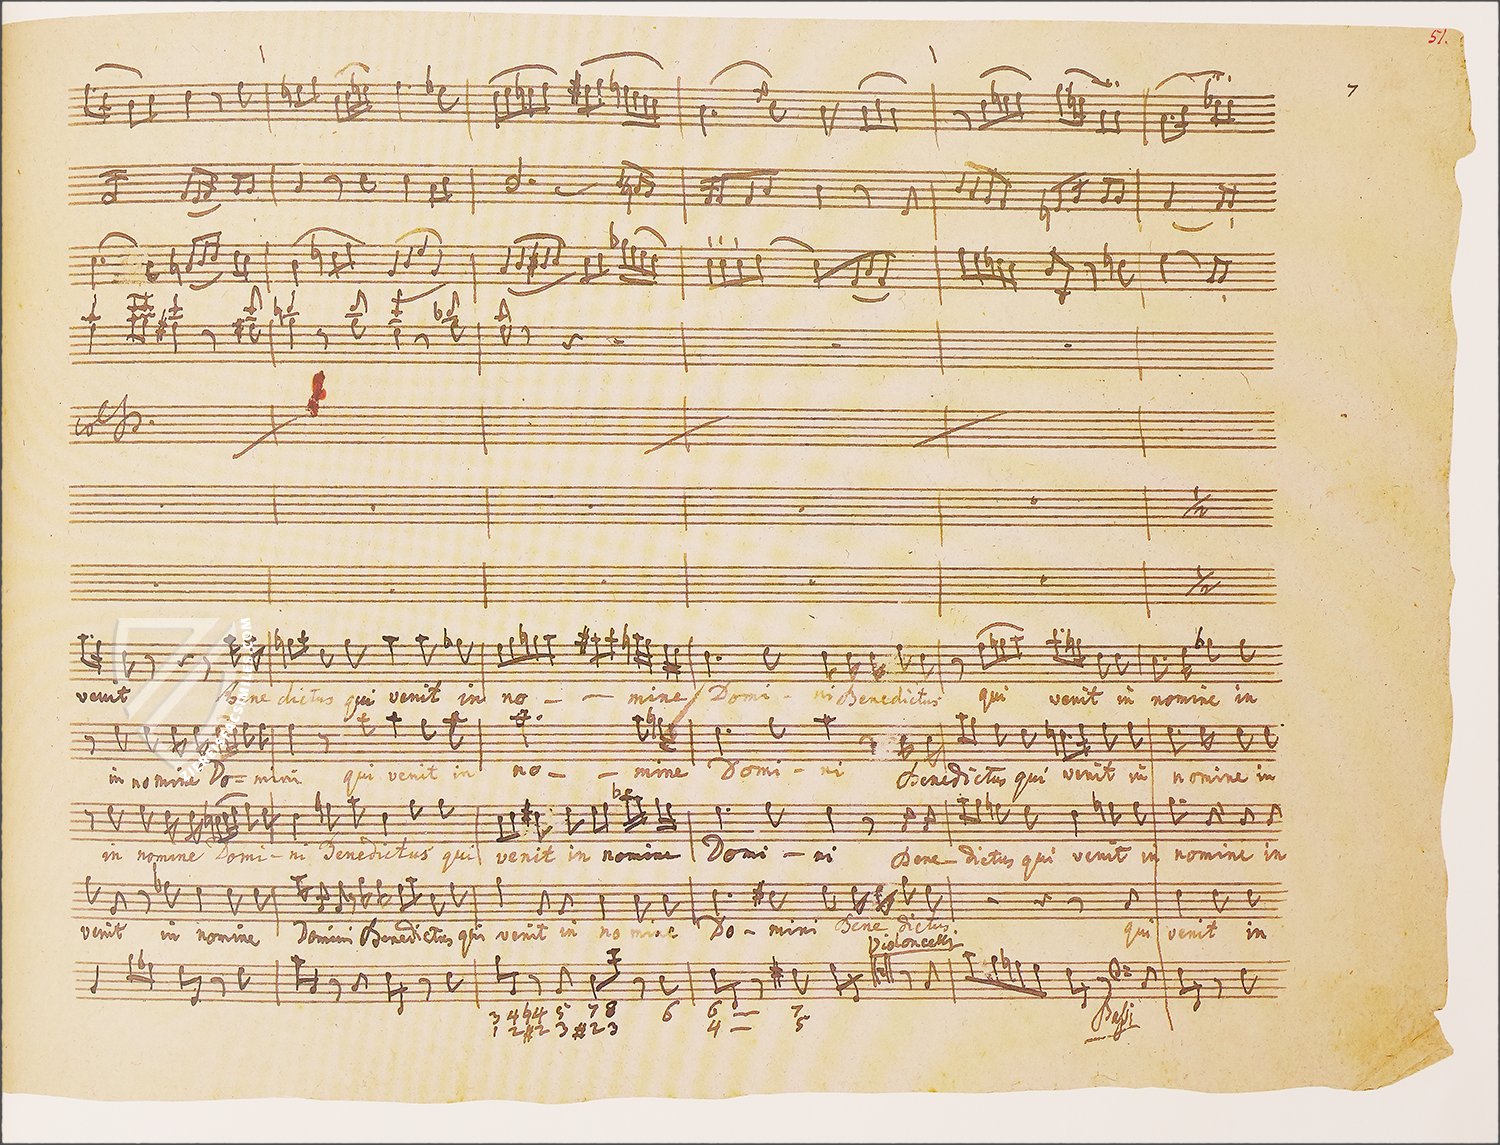 51.
7
col B.
venit Bene dictus qui venit in no - - mine Domi - ni Benedictus qui venit in nomine in
in nomine Do = mini qui venit in no - - mine Domi - ni Benedictus qui venit in nomine in
in nomine Domi - ni Benedictus qui venit in nomine Domi - ni Bene - dictus qui venit in nomine in
venit in nomine Domini Benedictus qui venit in no mine Do - mini Bene dictus qui venit in
Violoncelli
3 4 ♮4 5 7 8 6 6 — 7
1 2 #2 3 #2 3 4 — 5
Bassi